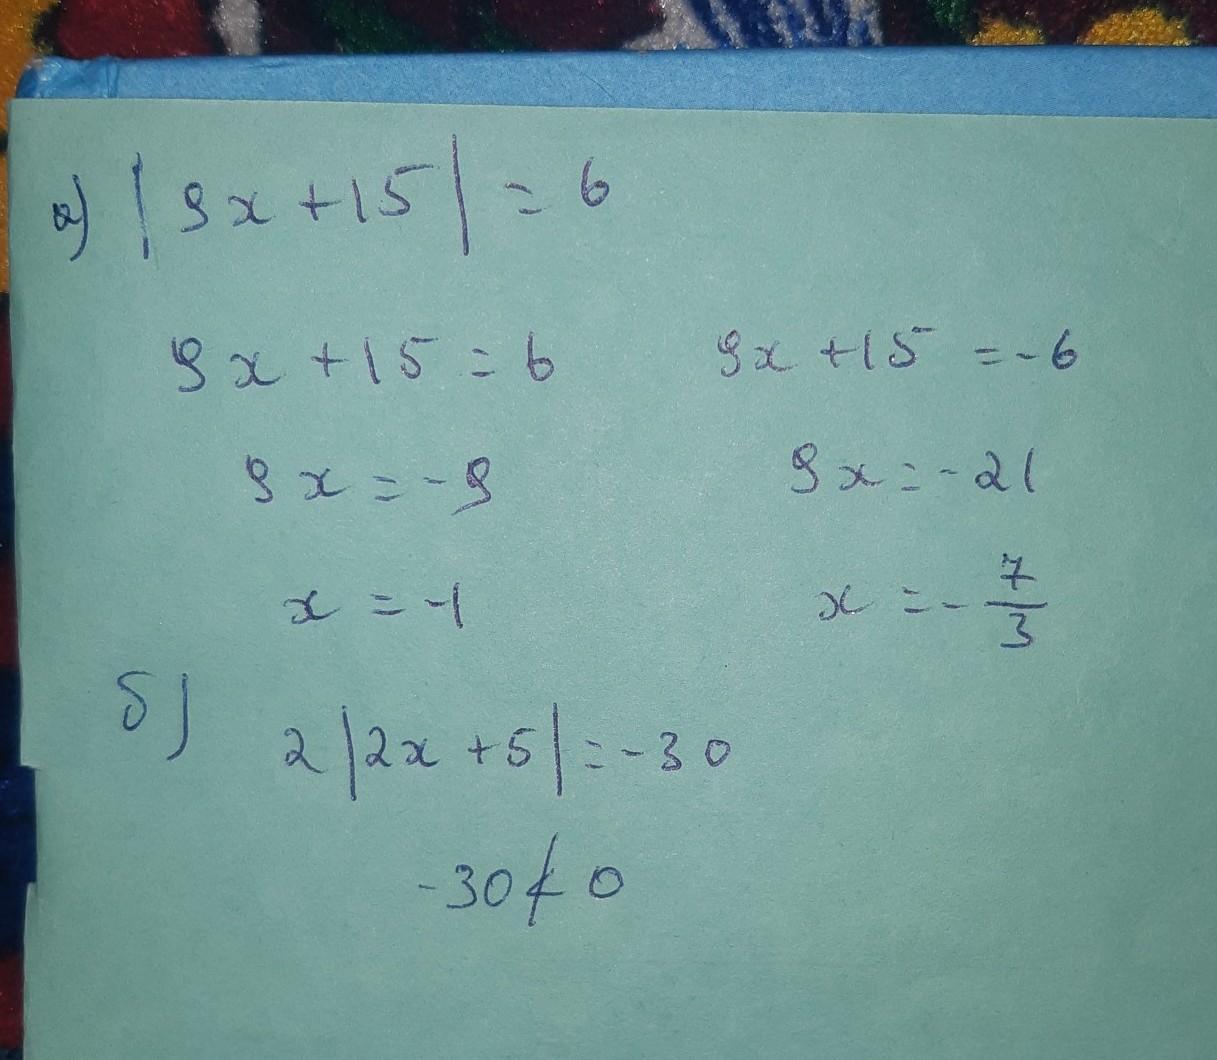 а) |9x + 15| = 6
9x + 15 = 6 9x + 15 = -6
9x = -9 9x = -21
x = -1 x = -7/3
б) 2|2x + 5| = -30
-30 ≮ 0